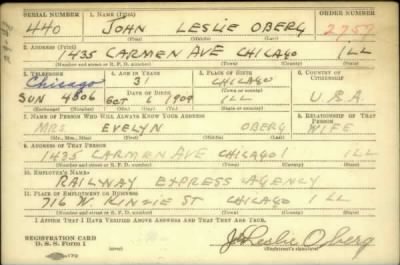 SERIAL NUMBER 1. NAME (Print) ORDER NUMBER
440 JOHN LESLIE OBERG 2757
(First) (Middle) (Last)
2. ADDRESS (Print)
1435 CARMEN AVE CHICAGO ILL
(Number and street or R. F. D. number) (Town) (County) (State)
3. TELEPHONE 4. AGE IN YEARS 5. PLACE OF BIRTH 6. COUNTRY OF CITIZENSHIP
Chicago 31 CHICAGO
DATE OF BIRTH (Town or county)
SUN 4806 OCT 6 1909 ILL U.S.A
(Exchange) (Number) (Mo.) (Day) (Yr.) (State or country)
7. NAME OF PERSON WHO WILL ALWAYS KNOW YOUR ADDRESS 8. RELATIONSHIP OF THAT PERSON
MRS EVELYN OBERG WIFE
(Mr., Mrs., Miss) (First) (Middle) (Last)
9. ADDRESS OF THAT PERSON
1435 CARMEN AVE CHICAGO ILL
(Number and street or R. F. D. number) (Town) (County) (State)
10. EMPLOYER'S NAME
RAILWAY EXPRESS AGENCY
11. PLACE OF EMPLOYMENT OR BUSINESS
716 W. KINZIE ST CHICAGO ILL
(Number and street or R. F. D. number) (Town) (County) (State)
I AFFIRM THAT I HAVE VERIFIED ABOVE ANSWERS AND THAT THEY ARE TRUE.
REGISTRATION CARD
D. S. S. Form 1
J Leslie Oberg
(Registrant's signature)